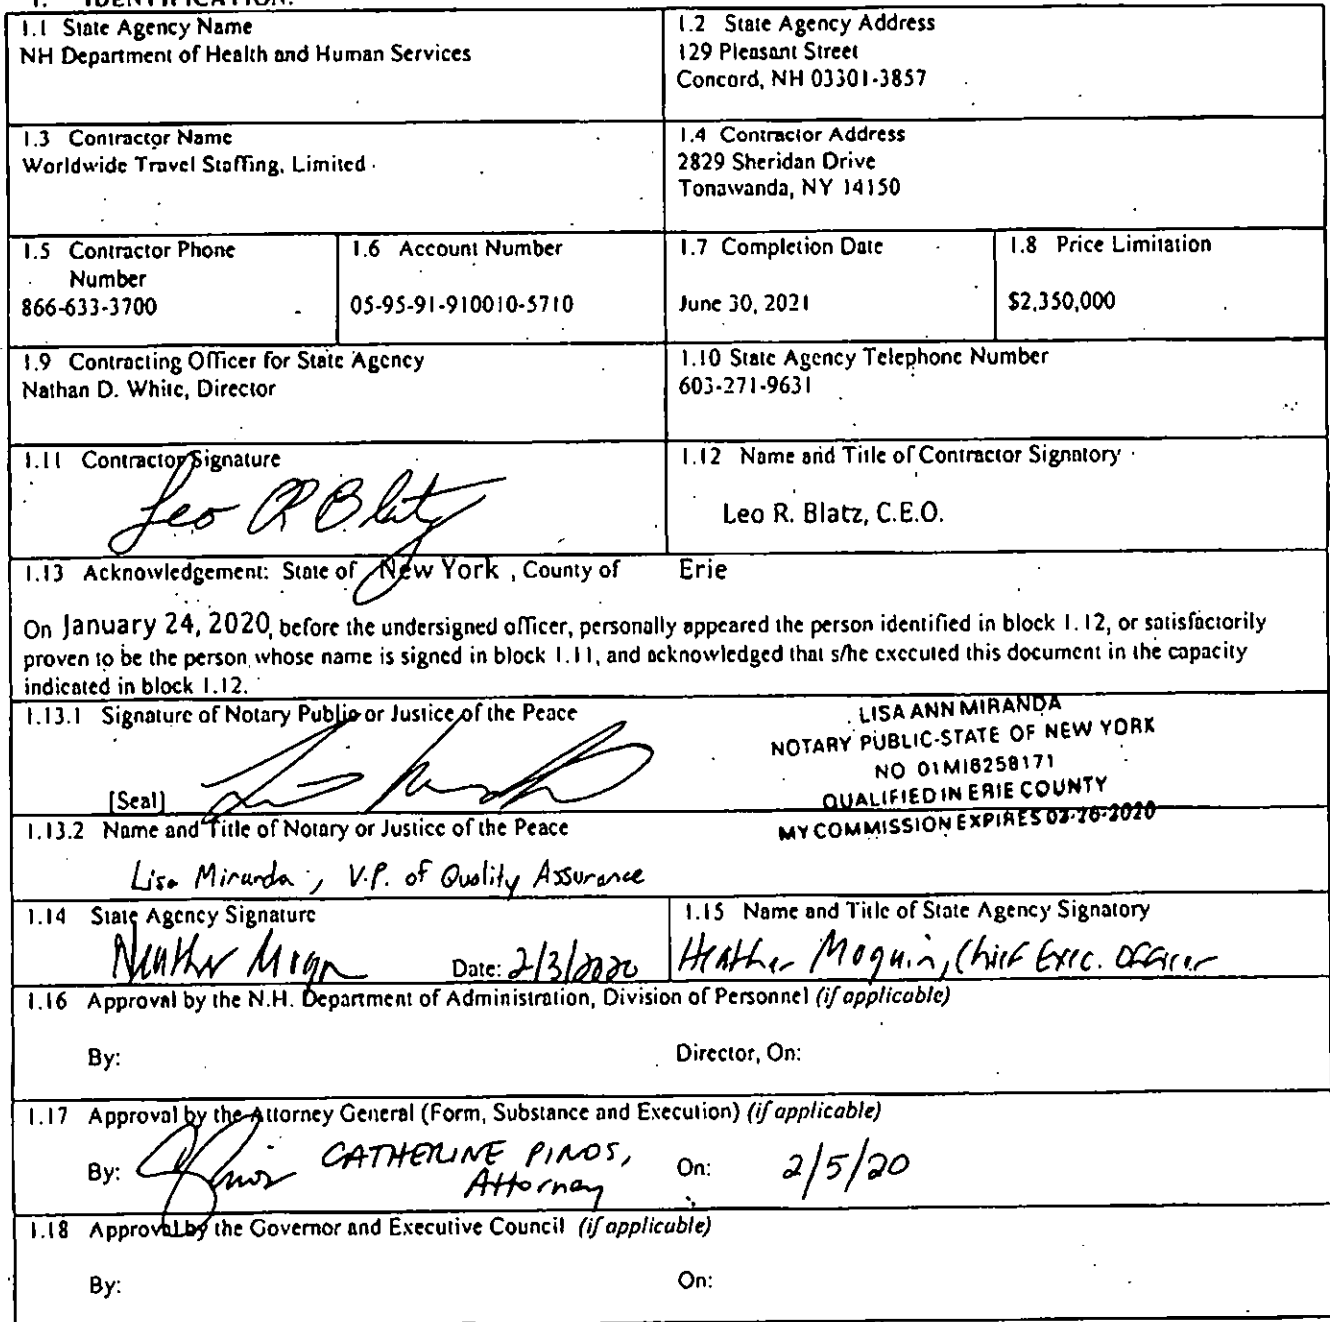 1. IDENTIFICATION.
1.1 State Agency Name
NH Department of Health and Human Services
1.2 State Agency Address
129 Pleasant Street
Concord, NH 03301-3857
1.3 Contractor Name
Worldwide Travel Staffing, Limited
1.4 Contractor Address
2829 Sheridan Drive
Tonawanda, NY 14150
1.5 Contractor Phone
Number
866-633-3700
1.6 Account Number
05-95-91-910010-5710
1.7 Completion Date
June 30, 2021
1.8 Price Limitation
$2,350,000
1.9 Contracting Officer for State Agency
Nathan D. White, Director
1.10 State Agency Telephone Number
603-271-9631
1.11 Contractor Signature
Leo R Blatz
1.12 Name and Title of Contractor Signatory
Leo R. Blatz, C.E.O.
1.13 Acknowledgement: State of New York , County of Erie
On January 24, 2020, before the undersigned officer, personally appeared the person identified in block 1.12, or satisfactorily
proven to be the person whose name is signed in block 1.11, and acknowledged that s/he executed this document in the capacity
indicated in block 1.12.
1.13.1 Signature of Notary Public or Justice of the Peace
[Seal]
LISA ANN MIRANDA
NOTARY PUBLIC-STATE OF NEW YORK
NO 01MI6258171
QUALIFIED IN ERIE COUNTY
MY COMMISSION EXPIRES 2020
1.13.2 Name and Title of Notary or Justice of the Peace
Lisa Miranda, V.P. of Quality Assurance
1.14 State Agency Signature
Heather Moquin Date: 2/3/2020
1.15 Name and Title of State Agency Signatory
Heather Moquin, Chief Exec. Officer
1.16 Approval by the N.H. Department of Administration, Division of Personnel (if applicable)
By: Director, On:
1.17 Approval by the Attorney General (Form, Substance and Execution) (if applicable)
By: CATHERINE PINOS, On: 2/5/20
Attorney
1.18 Approval by the Governor and Executive Council (if applicable)
By: On: